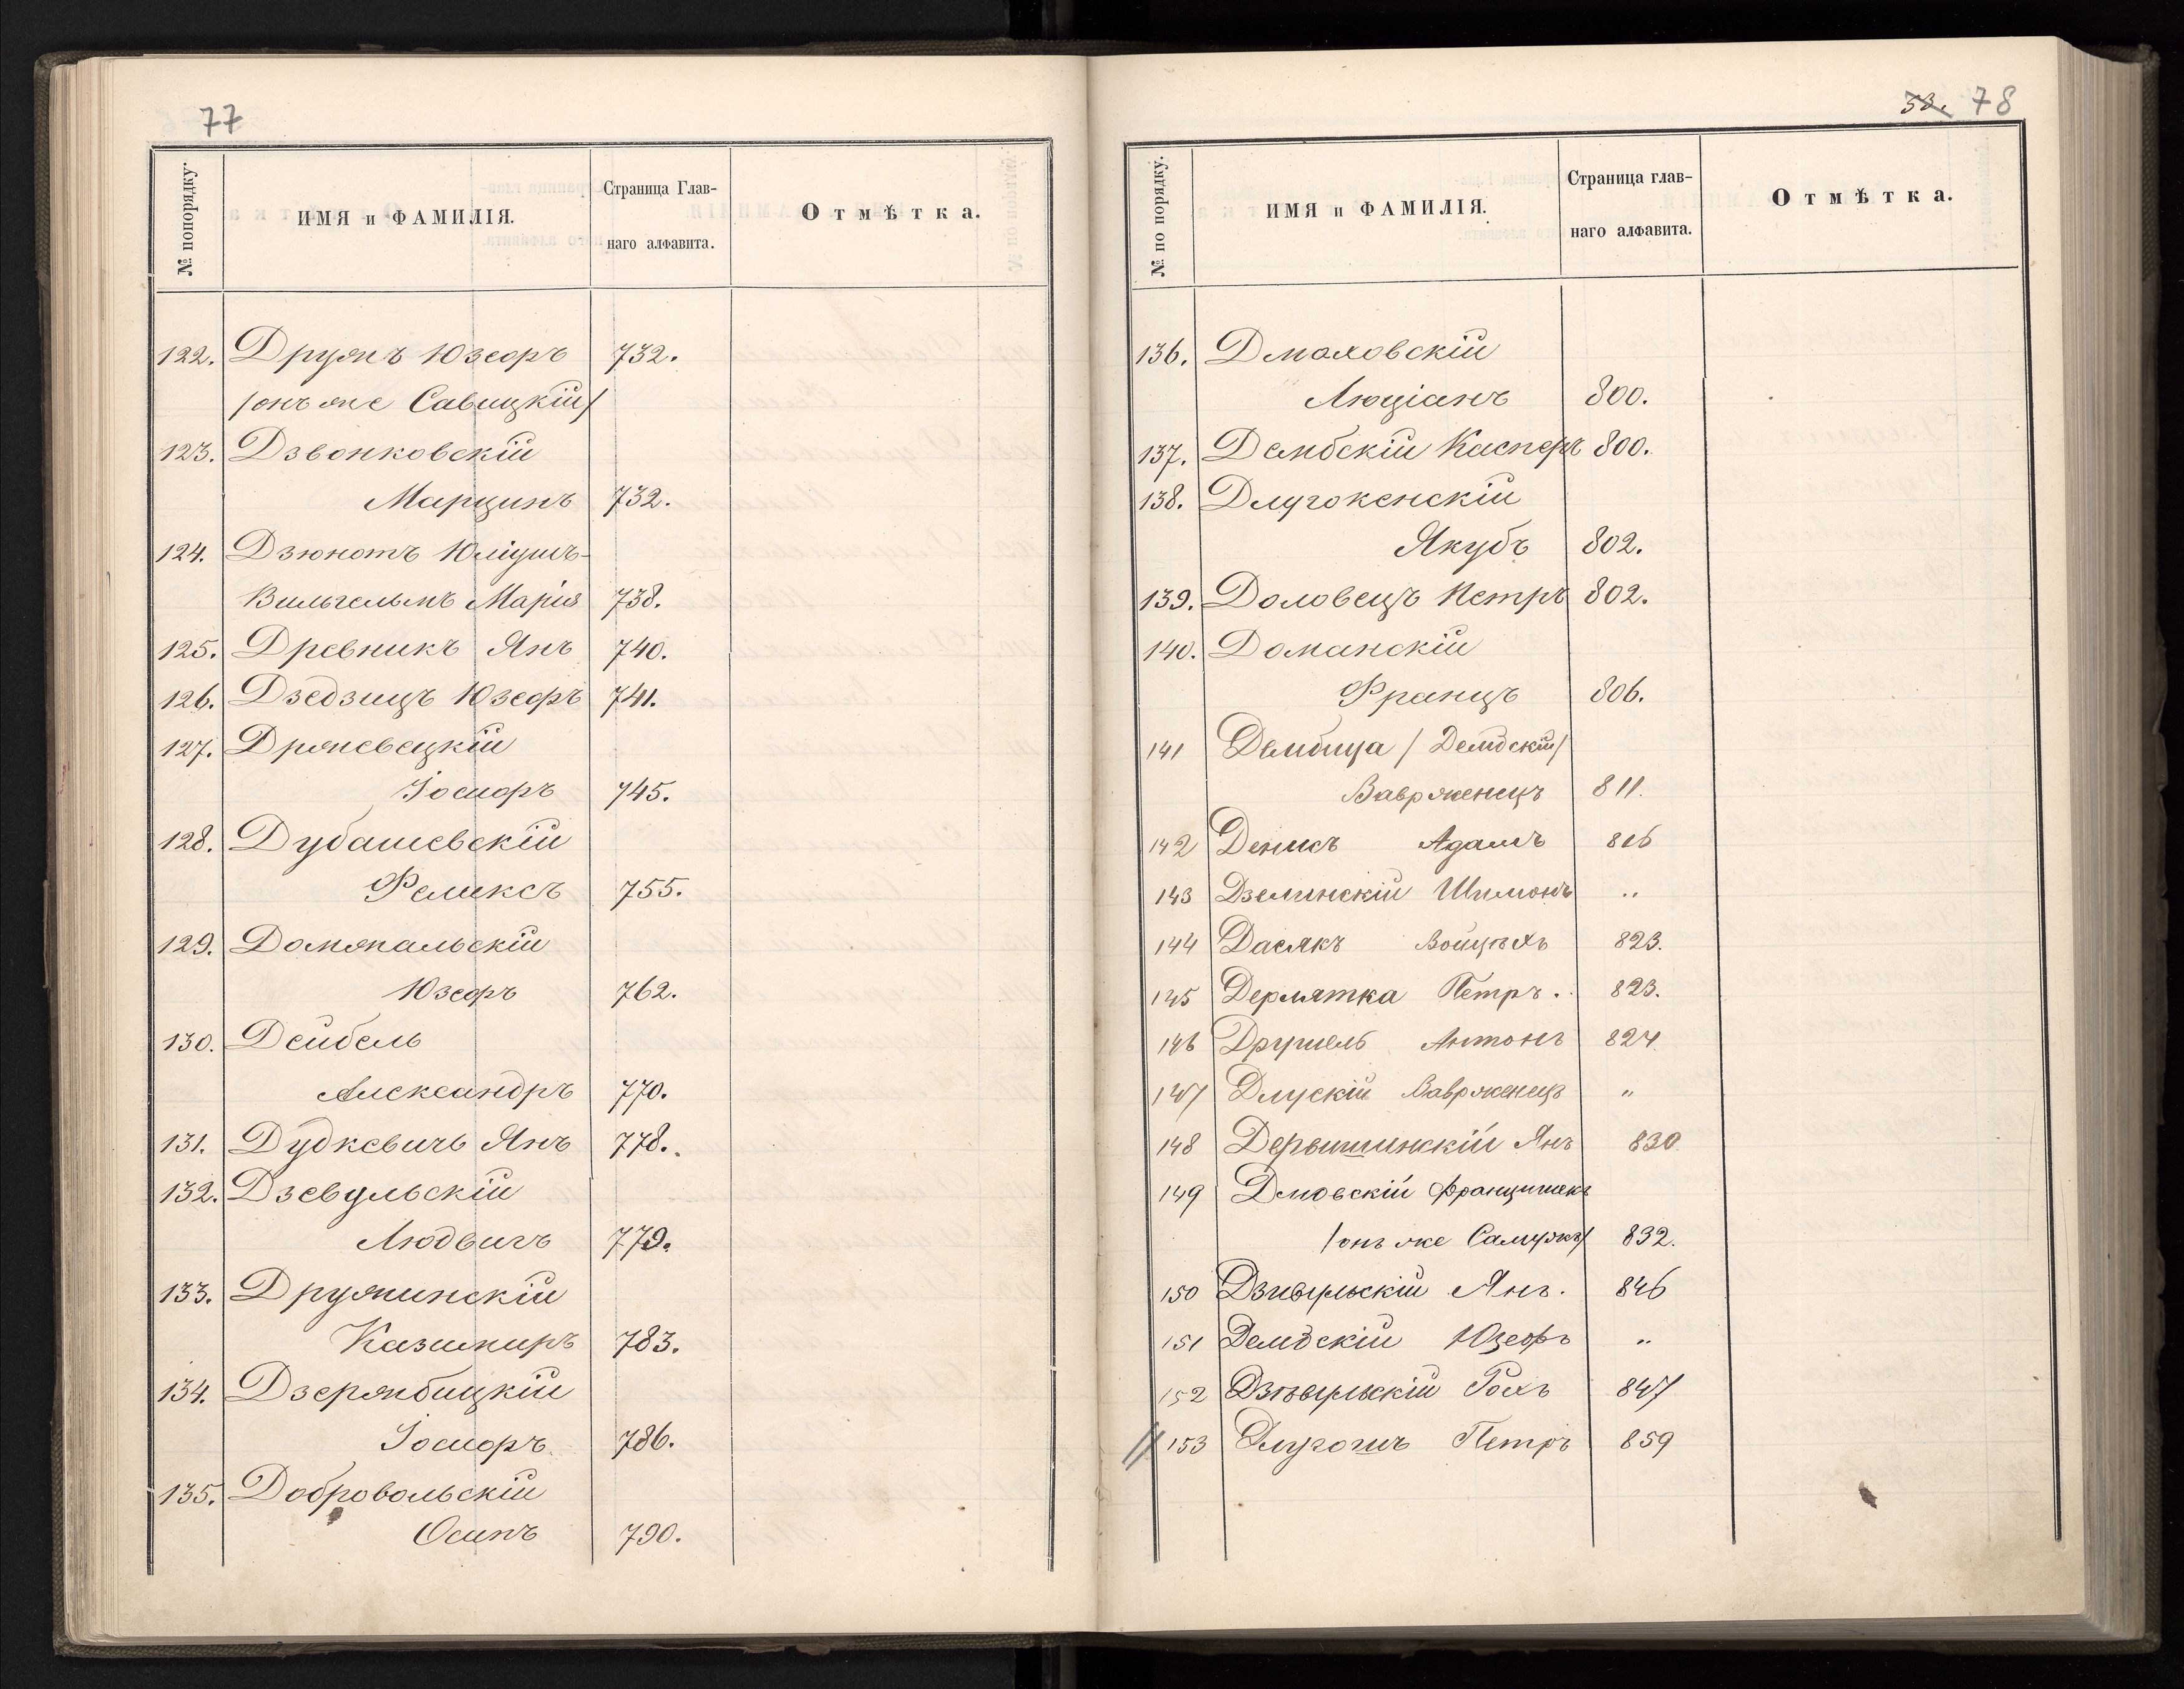 77
№ попорядку.
ИМЯ и ФАМИЛІЯ.
Страница Глав-
наго алфавита.
Отмѣтка.
122. Друянъ Юзефъ 732.
/онъ же Савицкій/
123. Дзвонковскій
Марцинъ 732.
124. Дзюнотъ Юліушъ-
Вильгельмъ Марія 738.
125. Древникъ Янъ 740.
126. Дзедзицъ Юзефъ 741.
127. Држевецкій
Іосифъ 745.
128. Дубашевскій
Феликсъ 755.
129. Домжальскій
Юзефъ 762.
130. Дейбель
Александръ 770.
131. Дудкевичъ Янъ 778.
132. Дзевульскій
Людвигъ 779.
133. Дружинскій
Казимиръ 783.
134. Дзержбицкій
Іосифъ 786.
135. Добровольскій
Осипъ 790.
53. 78
№ по порядку.
ИМЯ и ФАМИЛІЯ.
Страница глав-
наго алфавита.
Отмѣтка.
136. Дмоховскій
Люціанъ 800.
137. Дембскій Касперъ 800.
138. Длугокенскій
Якубъ 802.
139. Доловецъ Петръ 802.
140. Доманскій
Францъ 806.
141 Дембица /Дембскій/
Ваврженецъ 811.
142 Денисъ Адамъ 816
143 Дзелинскій Шимонъ "
144 Дасякъ Войцѣхъ 823.
145 Дермятка Петръ. 823.
146 Друшель Антонъ 824.
147 Длускій Ваврженецъ "
148 Дерышинскій Янъ 830
149 Дмовскій Францишекъ
/онъ же / 832.
150 Дзивульскій Янъ. 846
151 Дембскій Юзефъ "
152 Дзѣвульскій Рохъ 847
153 Длугошъ Петръ 859